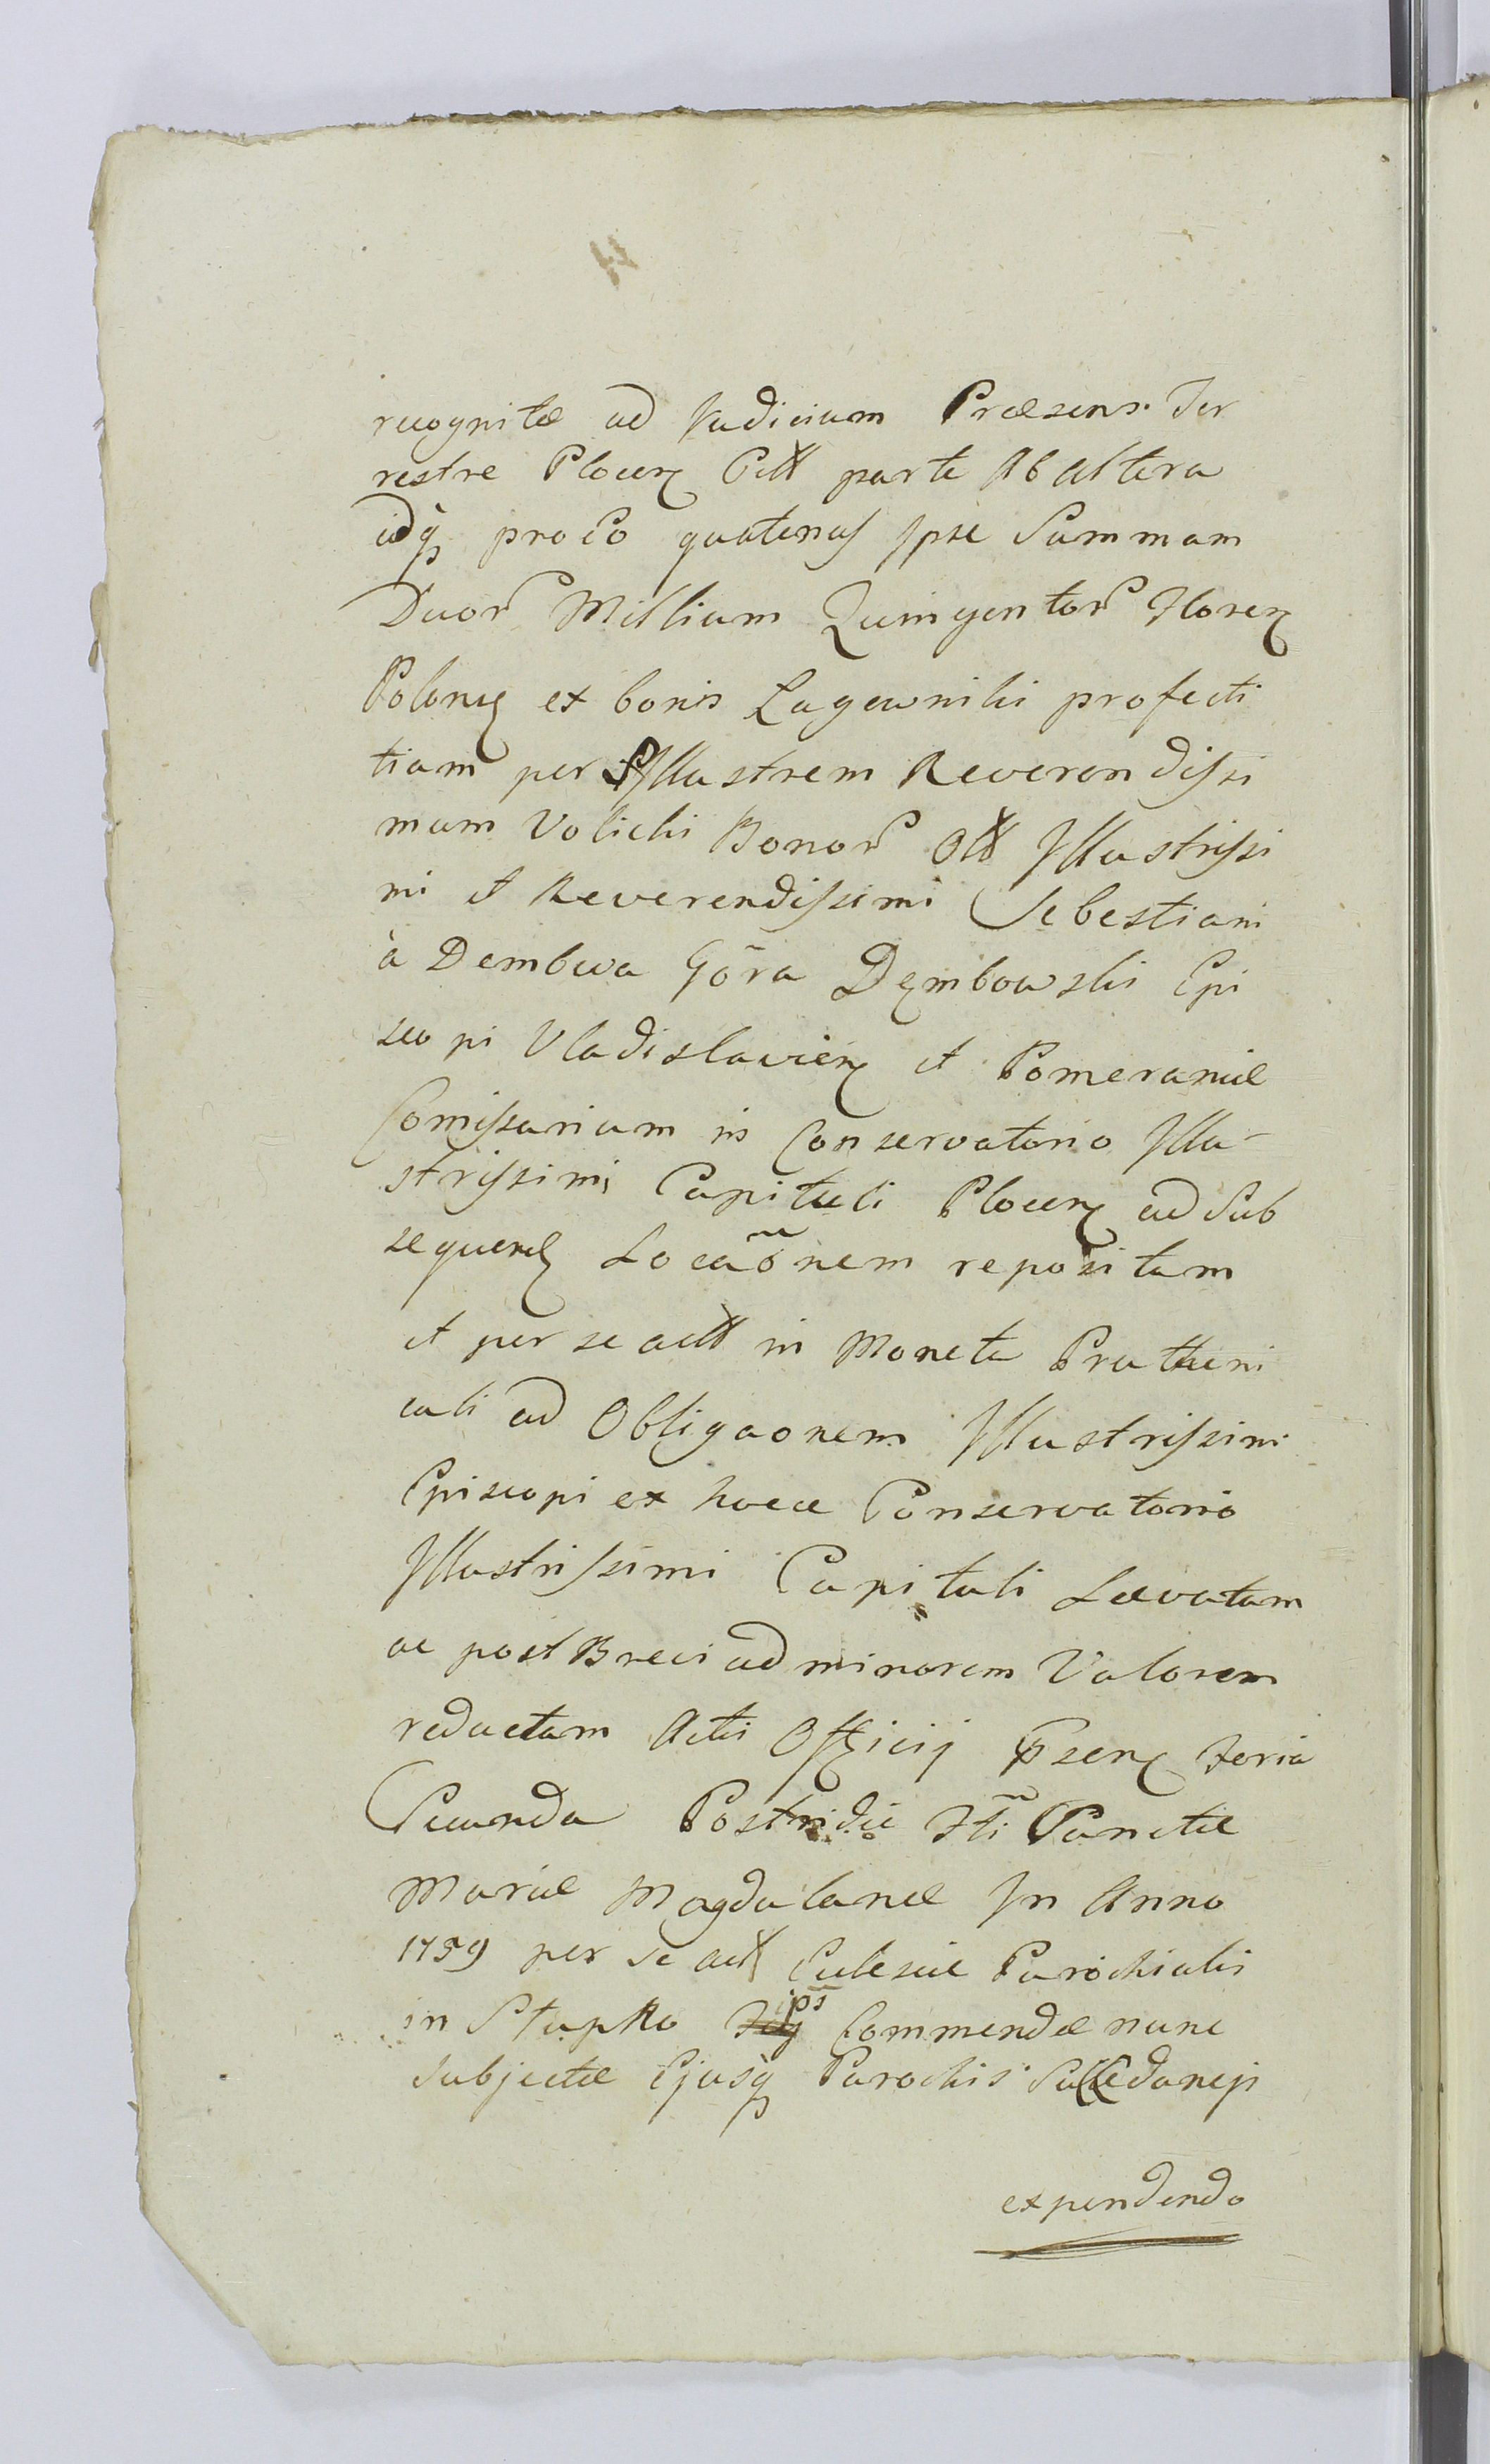 recognitæ ad Judicium Præsens Ter
restre Plocen Citt parte Ab altera
idq pro eo quatenus Ipse Summam
Duor Millium Quingentor Floren
Polonic ex bonis Łagewniki profecti
tiam per Illustrem Reverendissi
mum Volicki Bonor Olt Illustrissi
mi et Reverendissimi Sebestiani
à Dembwa Góra Dęmbowski Epi
scopi Vladislavien et Pomeraniæ
Comissarium in Conservatorio Illu-
strissimi Capituli Plocen ad Sub
sequend Locaõnem repositam
et per se actt in Moneta Prutheni
cali ad Obligaonem Illustrissimi
Episcopi ex hocce Conservatorio
Illustrissimi Capituli Lævatam
ac post Brevi ad minorem Valorem
reductam Actis Officij psen Feria
Secunda Postridie Fti Sanctæ
Mariæ Magdalanæ In Anno
1759 per se actt Eclesiæ Parochialis
in Słupko ips Commendæ nunc
Subjectæ Ejusq Parochis Succedaneis
expendendo